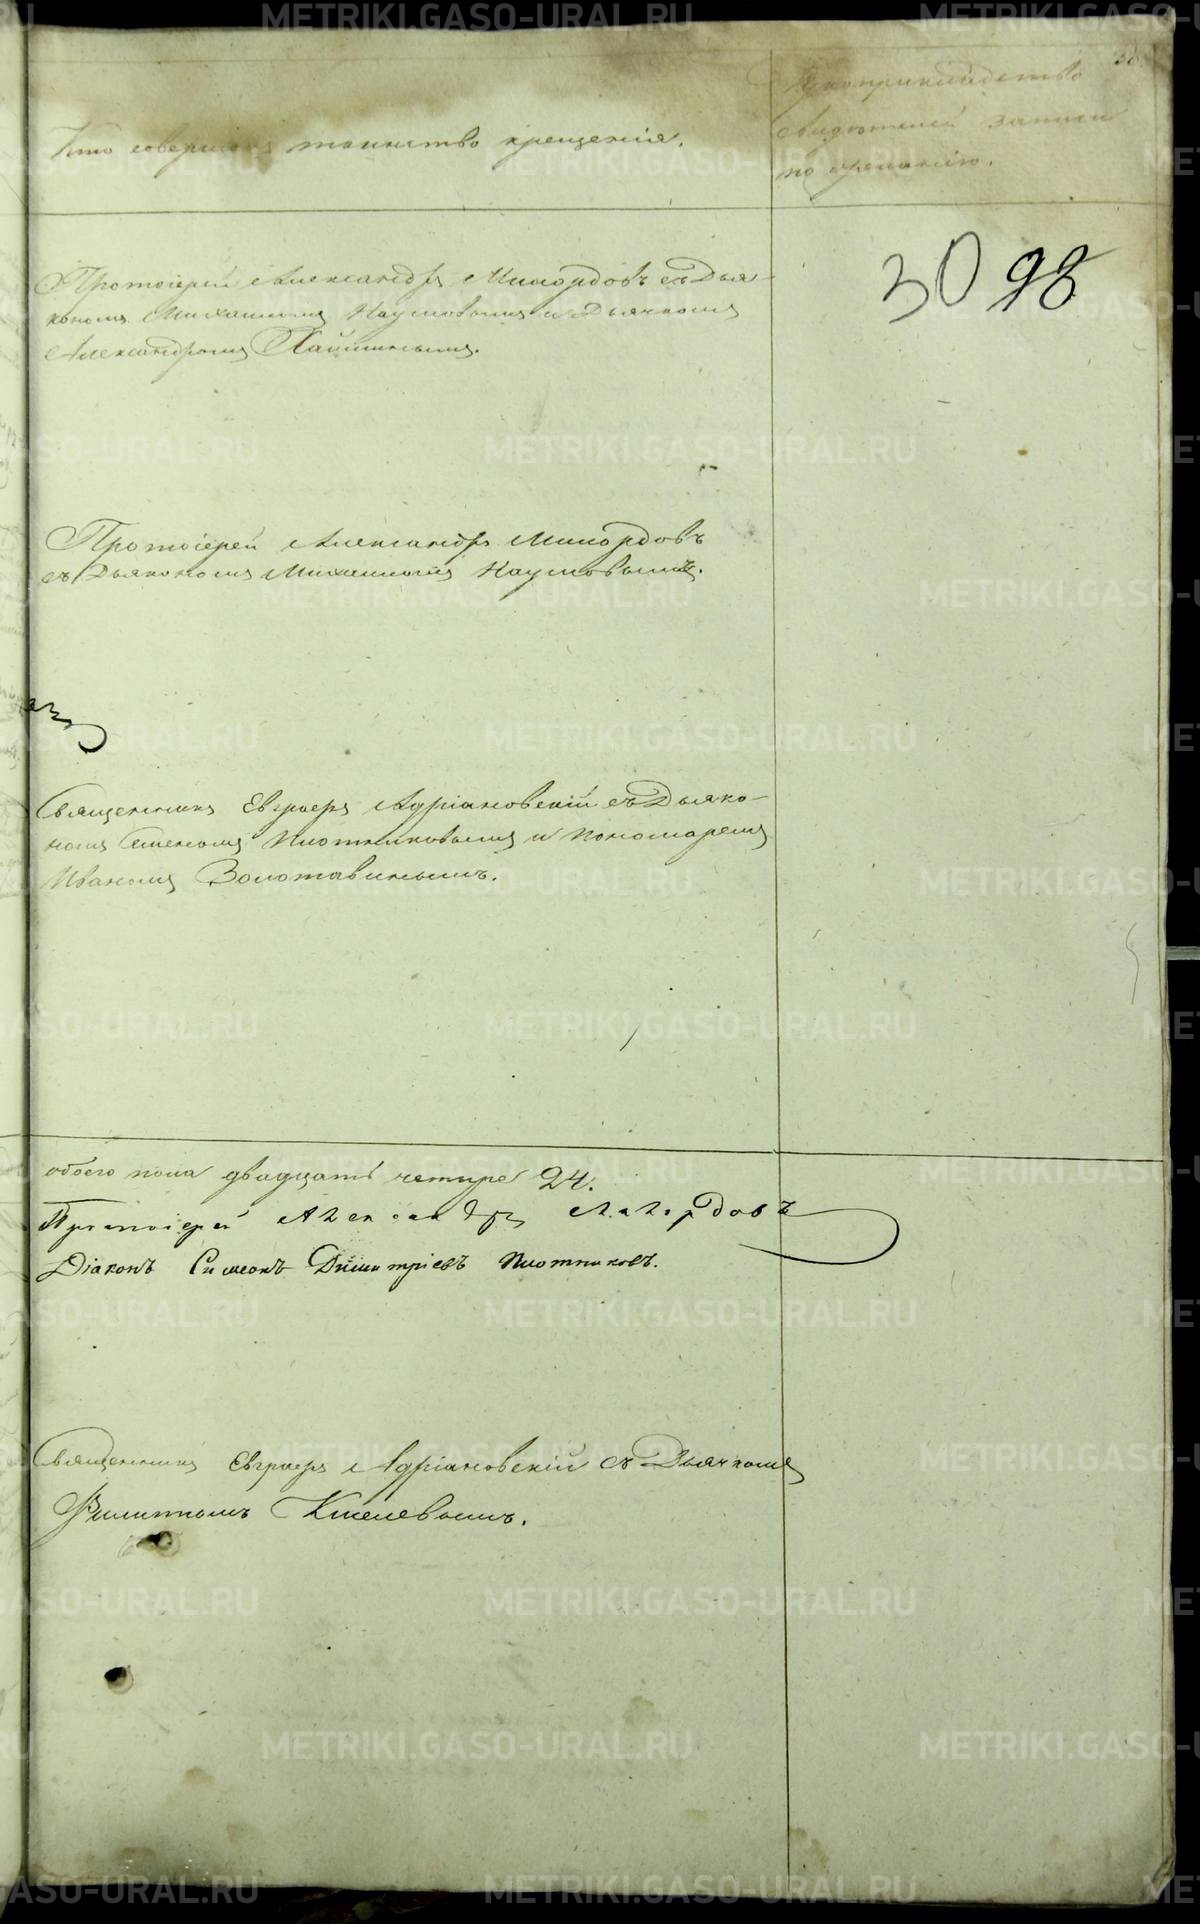 Кто совершалъ таинство крещенія.
Рукоприкладство
свидѣтелей записи
по желанію.
30
30 98
Протоіерей Александръ Миропдовъ съ Дья-
кономъ Михаиломъ Наумовымъ и Дьячкомъ
Александромъ
Протоіерей Александръ
съ Дьякономъ Михаиломъ Наумовымъ.
Священникъ Евграфъ Адріановскій съ Дьяко-
номъ Симеономъ Плотниковымъ и Пономаремъ
Иваномъ Золотавинымъ.
обоего пола двадцать четыре 24.
Протоіерей Александръ
Діаконъ Симеонъ Димитріевъ Плотниковъ.
Священникъ Евграфъ Адріановскій съ Дьячкомъ
Филиппомъ Киселевымъ.
METRIKI.GASO-URAL.RU